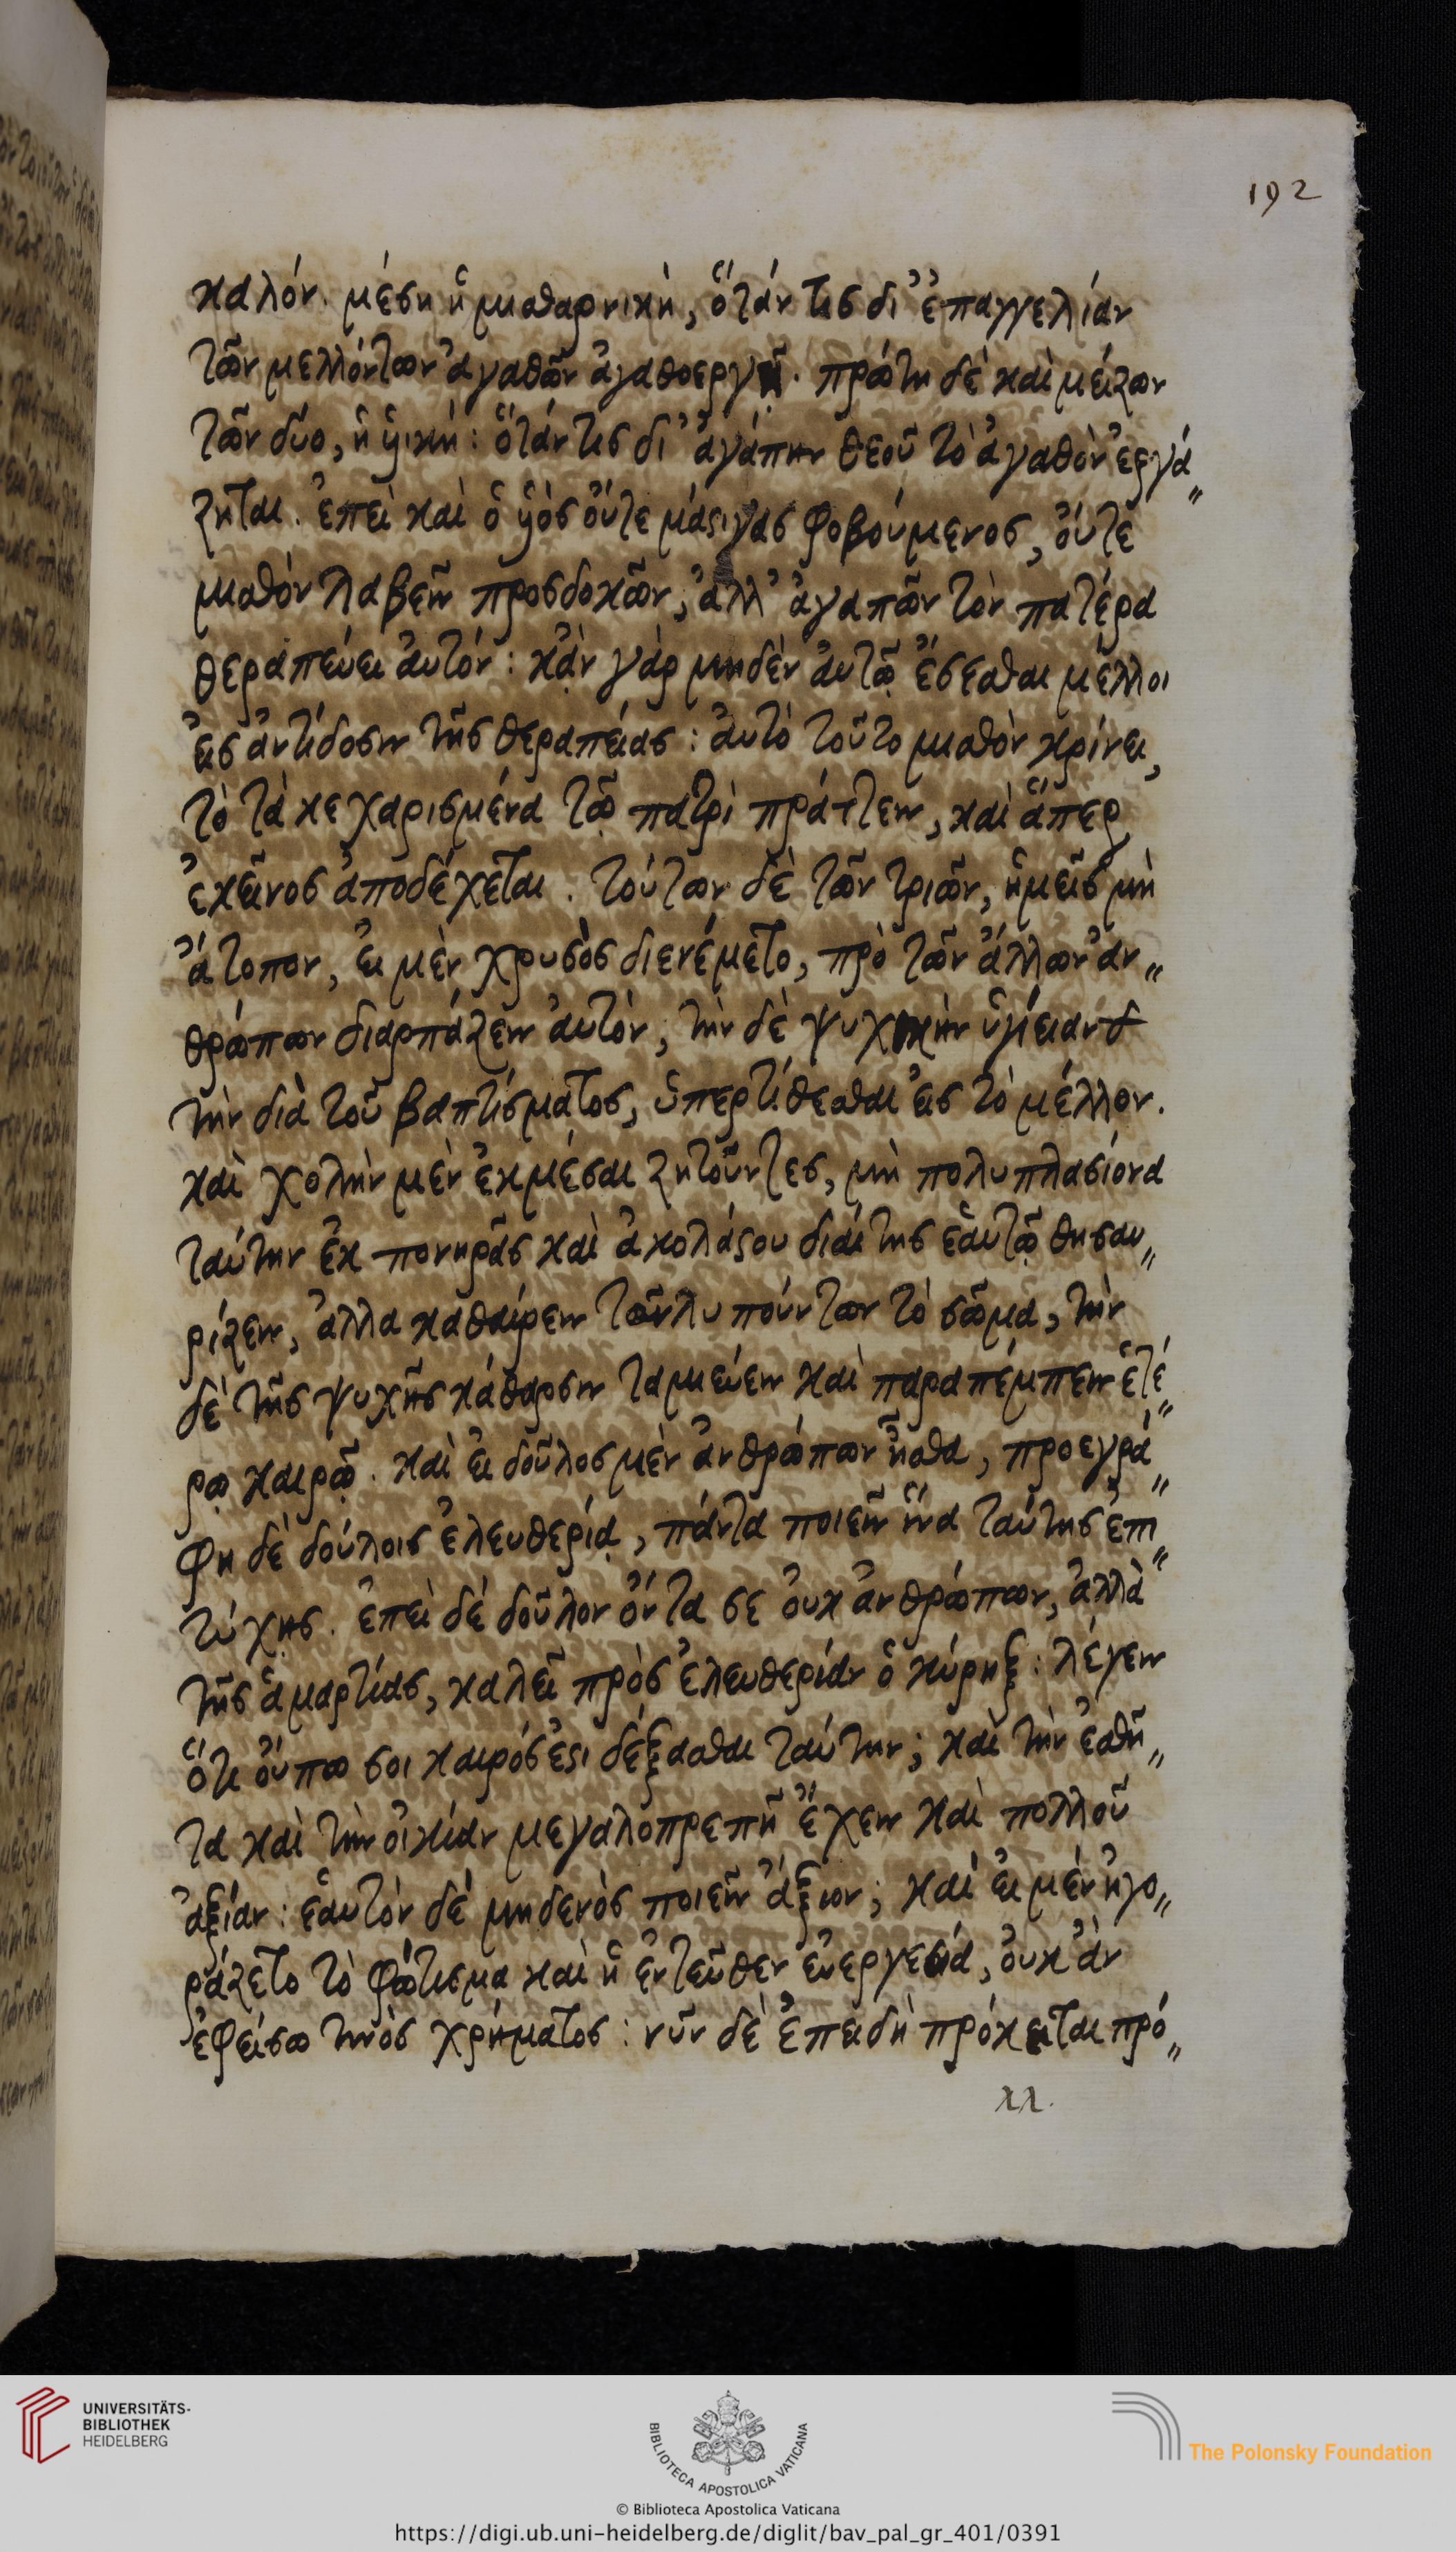 192
καλόν. μέση ἡ μισθαρνικὴ, ὅτάν τις δι' ἐπαγγελίαν
τῶν μελλόντων ἀγαθῶν ἀγαθοεργῆ. πρώτη δὲ καὶ μείζων
τῶν δύο, ἡ υἱική: ὅτάν τις δι' ἀγάπην θεοῦ τὸ ἀγαθὸν ἐργά„
ζηται. ἐπεὶ καὶ ὁ υἱὸς οὔτε μάστιγας φοβούμενος, οὔτε
μισθόν λαβεῖν προσδοκῶν, ἀλλ' ἀγαπῶν τὸν πατέρα
θεραπεύει ἀυτόν: κἂν γάρ μηδὲν ἀυτῷ ἔσεσθαι μέλλοι
εἰς ἀντίδοσιν τῆς θεραπείας: ἀυτὸ τοῦτο μισθὸν κρίνει,
τὸ τὰ κεχαρισμένα τῷ πατρὶ πράττειν, καὶ ἅπερ
ἐκεῖνος ἀποδέχεται. τούτων δὲ τῶν τριῶν, ἡμεῖς μὴ
ἄτοπον, εἰ μὲν χρυσὸς διενέμετο, πρὸ τῶν ἄλλων ἀν„
θρώπων διαρπάζειν ἀυτὸν, τὴν δὲ ψυχικὴν ὑγίειαν
τὴν διὰ τοῦ βαπτίσματος, ὑπερτίθεσθαι εἰς τὸ μέλλον.
καὶ χολὴν μὲν ἐκμέσαι ζητοῦντες, μὴ πολυπλασίονα
ταύτην ἐκ πονηρᾶς καὶ ἀκολάστου διαίτης ἑαυτῷ θησαυ„
ρίζειν, ἀλλα καθαίρειν τῶν λυπούντων τὸ σῶμα, τὴν
δὲ τῆς ψυχῆς κάθαρσιν ταμιεύειν καὶ παραπέμπειν ἑτέ„
ρῳ καιρῷ. καὶ εἰ δοῦλος μὲν ἀνθρώπων ἦσθα, προεγρά„
φη δὲ δούλοις ἐλευθερίᾳ, πάντα ποιεῖν ἵνα ταύτης ἐπι„
τύχῃς. ἐπεὶ δὲ δοῦλον ὄντα σε ὀυκ ἀνθρώπων, ἀλλὰ
τῆς ἁμαρτίας, καλεῖ πρὸς ἐλευθερίαν ὁ κύρηξ: λέγειν
ὅτι ὄυπω σοι καιρός ἐστι δέξασθαι ταύτην; καὶ τὴν ἐσθῆ„
τα καὶ τὴν οἰκίαν μεγαλοπρεπῆ ἔχειν καὶ πολλοῦ
ἀξίαν: ἑαυτὸν δὲ μηδενὸς ποιεῖν ἄξιον; καὶ εἰ μὲν ἠγο„
ράζετο τὸ φώτισμα καὶ ἡ ἐντεῦθεν ἐυεργεσία, ὀυκ ἂν
ἐφείσω τινὸς χρήματος: νῦν δὲ ἐπειδὴ πρόκειται πρό„
λλ.
UNIVERSITÄTS-
BIBLIOTHEK
HEIDELBERG
BIBLIOTECA APOSTOLICA VATICANA
The Polonsky Foundation
© Biblioteca Apostolica Vaticana
https://digi.ub.uni-heidelberg.de/diglit/bav_pal_gr_401/0391